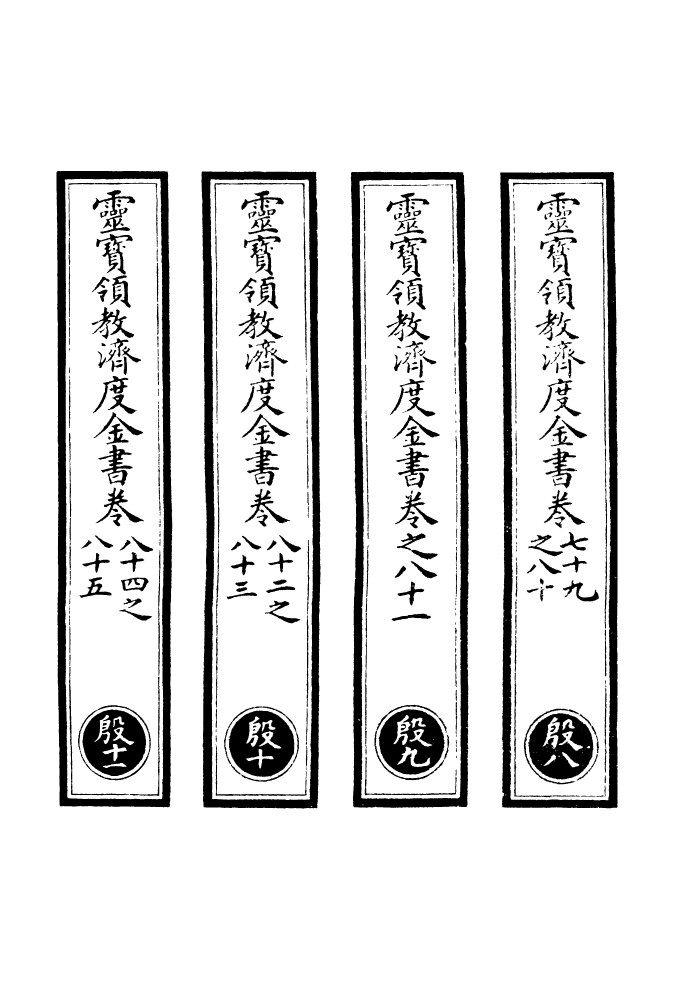 靈寶領教濟度金書卷七十九
之八十
殷八
靈寶領教濟度金書卷之八十一
殷九
靈寶領教濟度金書卷八十二之
八十三
殷十
靈寶領教濟度金書卷八十四之
八十五
殷十一